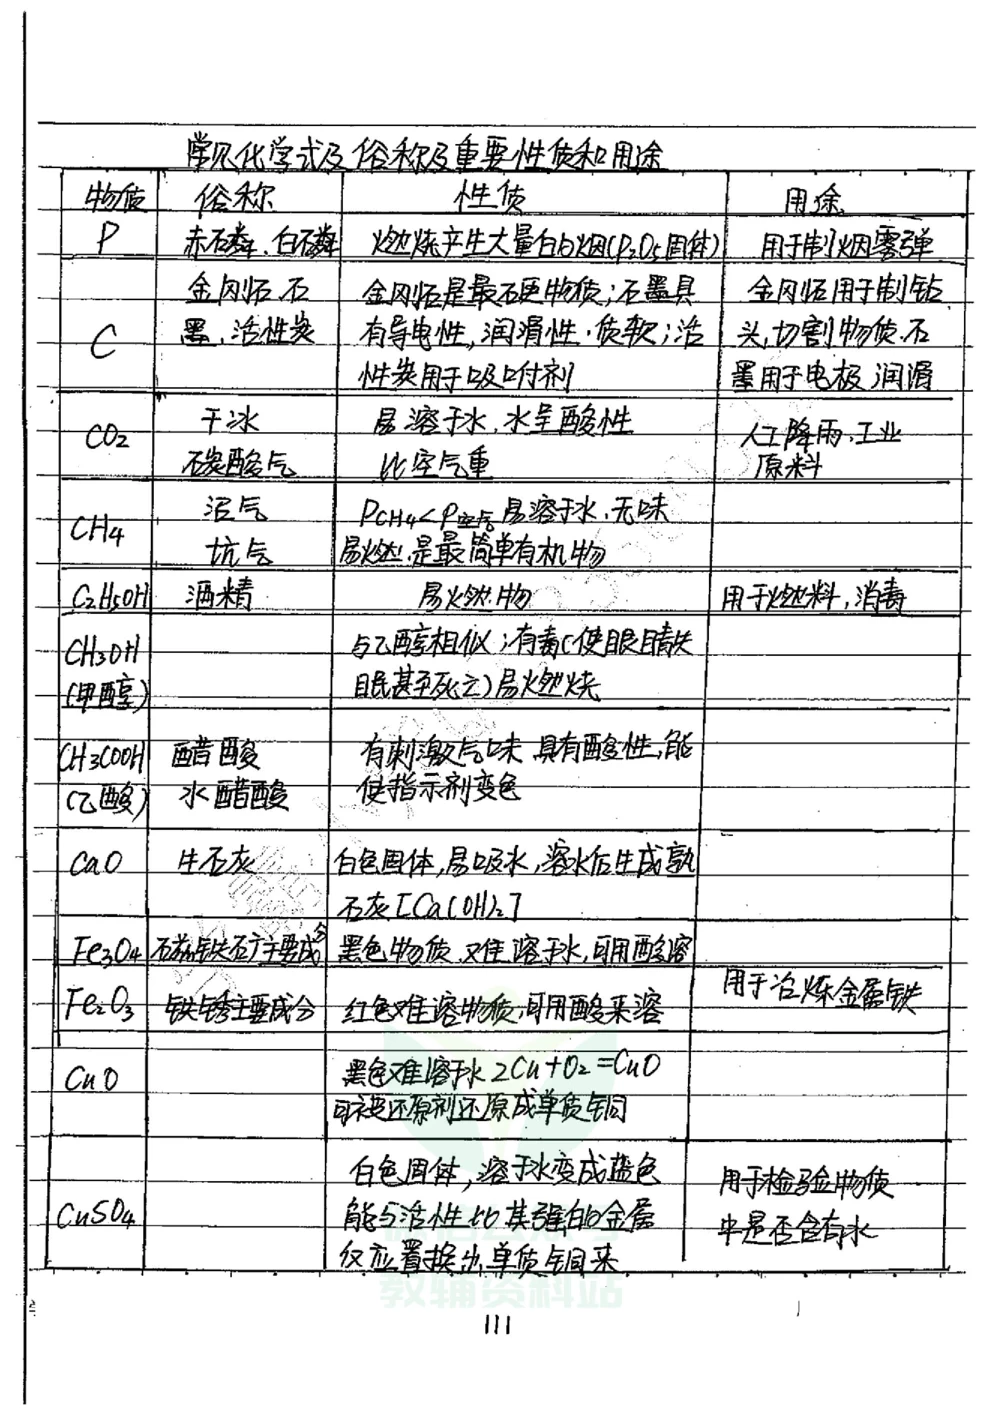 常见化学式及俗称及重要性质和用途
物质 俗称 性质 用途
P 赤石磷、白石磷 燃烧产生大量白的烟(P2O5固体) 用于制烟雾弹
金刚石、石 金刚石是最石更物质；石墨具 金刚石用于制钻
C 墨、活性炭 有导电性，润滑性·质软；活 头,切割物质.石
性炭用于吸附剂 墨用于电极 润滑
CO2 干冰 易溶于水，水呈酸性 人工降雨、工业
碳酸气 比空气重 原料
CH4 沼气 PCH4<P空气 易溶于水、无味
坑气 易燃.是最简单有机物
C2H5OH 酒精 易燃物 用于燃料，消毒
CH3OH 与乙醇相似；有毒(使眼睛失
(甲醇) 眠甚至死亡)易燃烧
CH3COOH 醋酸 有刺激气味 具有酸性,能
(乙酸) 冰醋酸 使指示剂变色
CaO 生石灰 白色固体,易吸水,溶水后生成熟
石灰[Ca(OH)2]
Fe3O4 石磁铁石矿主要成分 黑色物质.难溶于水,可用酸溶
Fe2O3 铁锈主要成分 红色难溶物质,可用酸来溶 用于冶炼金属铁
CuO 黑色难溶于水 2Cu+O2=CuO
可被还原剂还原成单质铜
白色固体,溶于水变成蓝色 用于检验物质
CuSO4 能与活性比其强的金属 中是否含有水
反应置换出单质铜来
教辅资料站
111